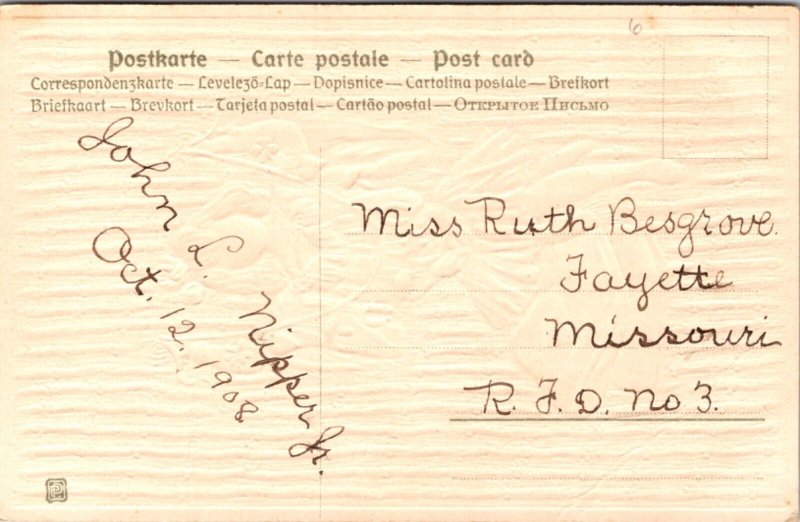 6
Postkarte — Carte postale — Post card
Correspondenzkarte — Levelező-Lap — Dopisnice — Cartolina postale — Brefkort
Briefkaart — Brevkort — Tarjeta postal — Cartão postal — Открытое Письмо
John L. Nipper Jr.
Oct. 12, 1908
Miss Ruth Besgrove.
Fayette
Missouri
R. F. D. No 3.